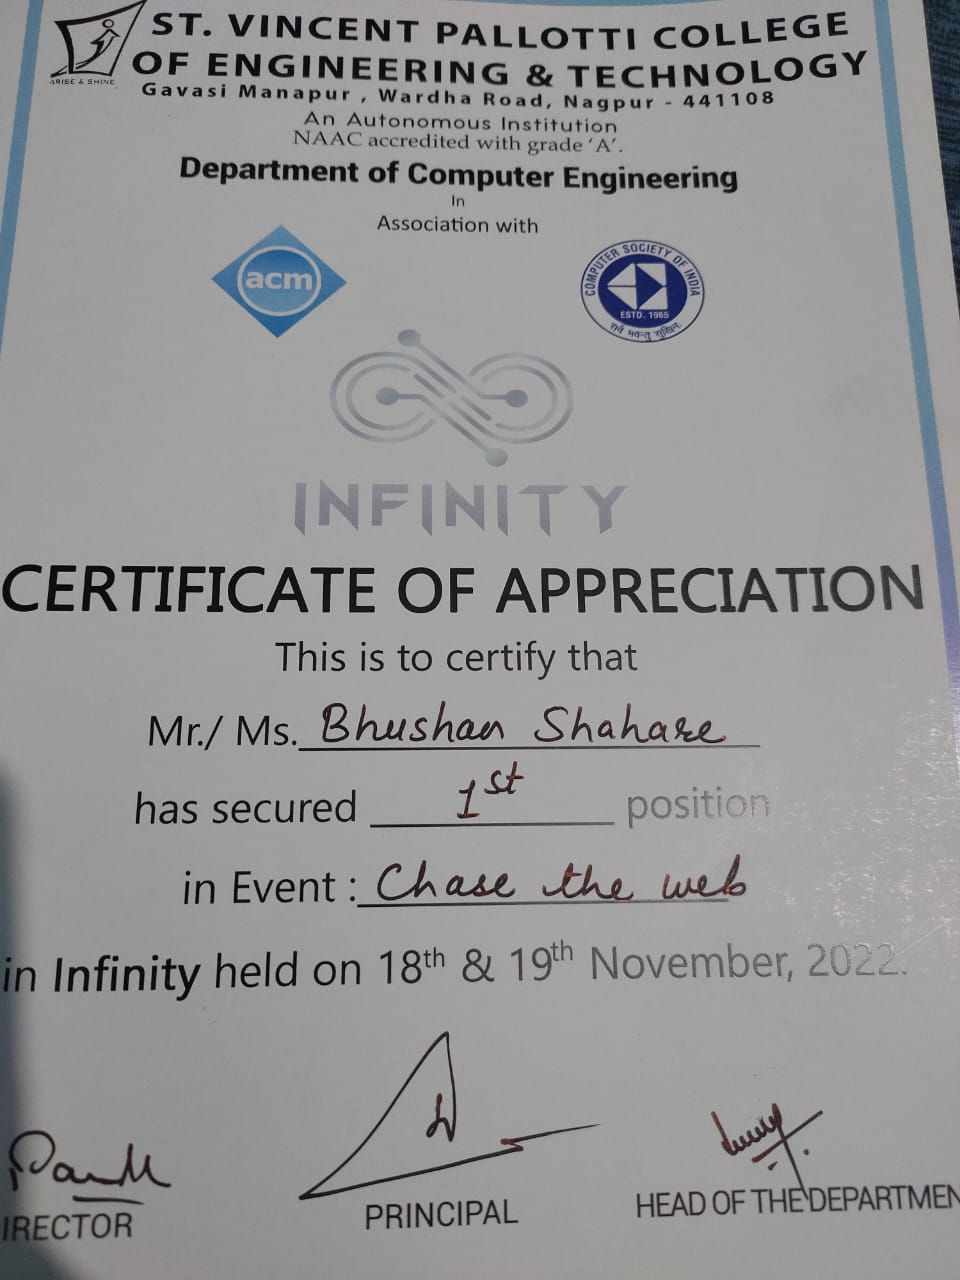 ST. VINCENT PALLOTTI COLLEGE
OF ENGINEERING & TECHNOLOGY
ARISE & SHINE
Gavasi Manapur , Wardha Road, Nagpur - 441108
An Autonomous Institution
NAAC accredited with grade 'A'.
Department of Computer Engineering
In
Association with
acm
COMPUTER SOCIETY OF INDIA
ESTD. 1965
सर्वे भवन्तु सुखिनः
INFINITY
CERTIFICATE OF APPRECIATION
This is to certify that
Mr./ Ms. Bhushan Shahare
has secured 1st position
in Event : Chase the web
in Infinity held on 18th & 19th November, 2022.
IRECTOR
PRINCIPAL
HEAD OF THE DEPARTMEN